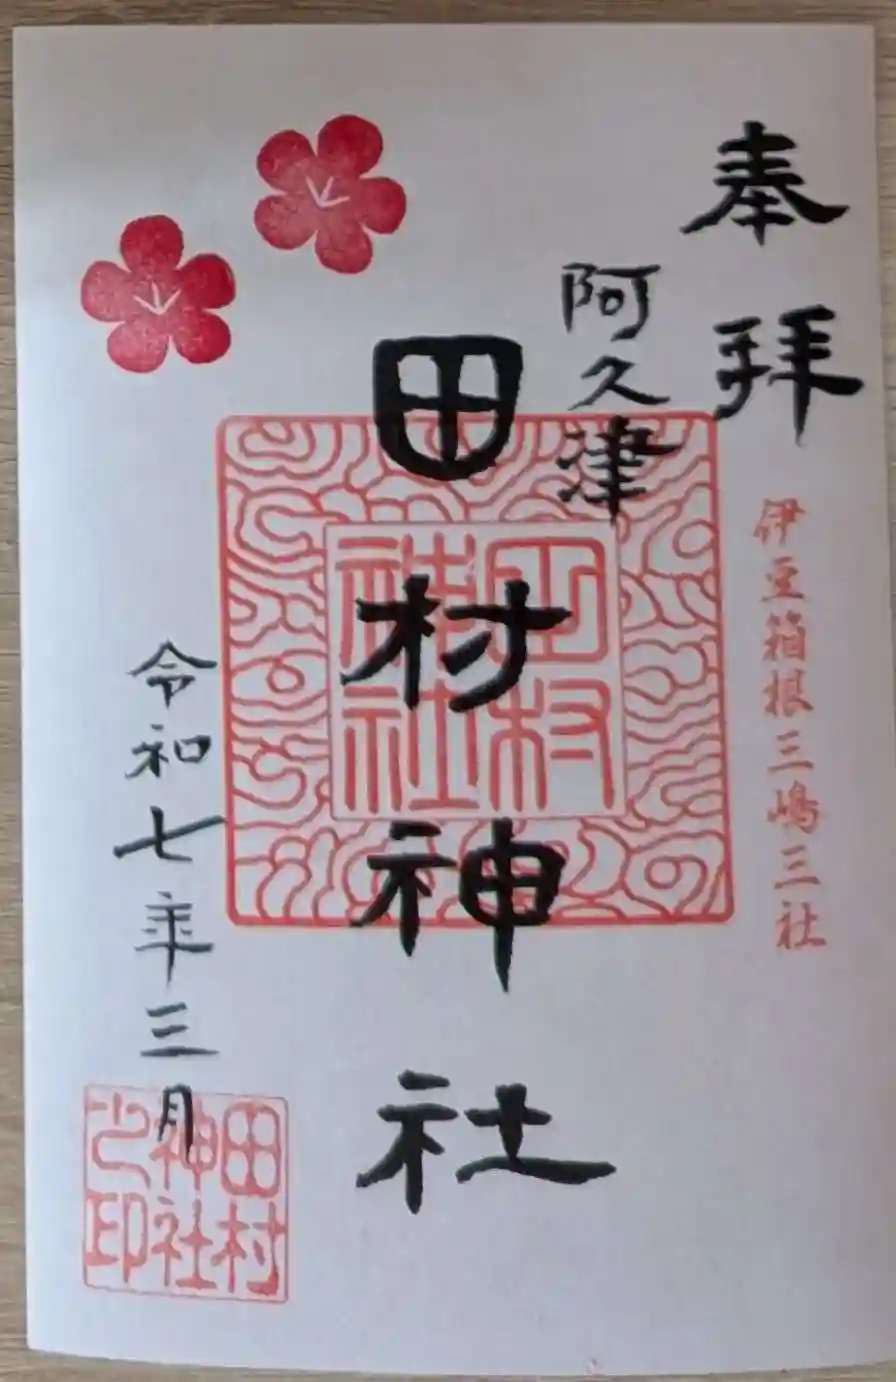 奉拝
伊豆箱根三嶋三社
阿久津
田村神社
田村
神社
令和七年三月
田村
神社
之印